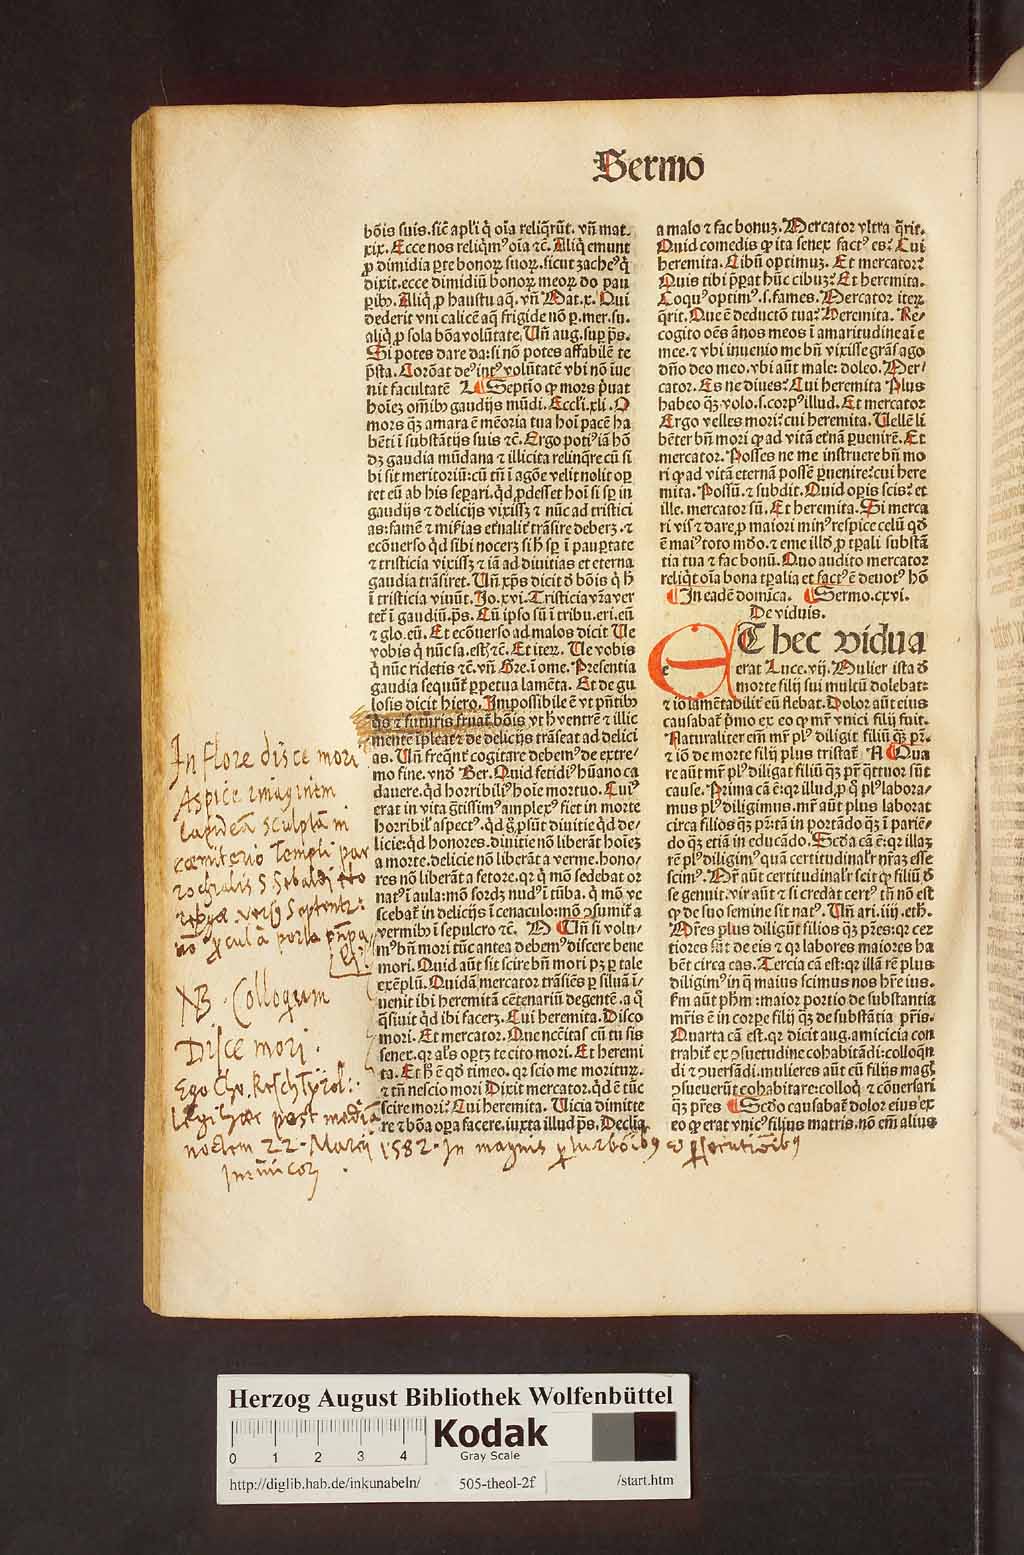 Sermo
bõis suis. sic̃ apl'i q̃ oĩa reliq̃rũt. vñ mat.
xix. Ecce nos reliq̃mꝰ oĩa ⁊c̃. Aliq̃ emunt
ꝓ dimidia ꝑte bonoꝝ suoꝝ. sicut zacheꝰ q̃
dixit. ecce dimidiũ bonoꝝ meoꝝ do pau
ꝑibꝰ. Aliq̃ ꝓ haustu aq̃. vñ Mat. x. Qui
dederit vni calicẽ aq̃ frigide nõ ꝑ. mer. su.
aliq̃ ꝓ sola bõa volũtate. Uñ aug. sup p̃s.
Si potes dare da: si nõ potes affabilẽ te
p̃sta. Coroat deꝰ intꝰ volũtatẽ vbi nõ iue
nit facultatẽ L ¶ Septĩo ꝙ mors p̃uat
hoĩeʒ om̃ibꝰ gaudijs mũdi. Eccl'i. xli. O
mors q̃ʒ amara ẽ mẽoria tua hoĩ pacẽ ha
bẽti ĩ substãtijs suis ⁊c̃. Ergo potiꝰ iã hõ
dʒ gaudia mũdana ⁊ illicita relinq̃re cũ si
bi sit meritoriũ: cũ tñ ĩ agõe velit nolit opꝛ
tet eũ ab his separi. q̃d ꝓdesset hoĩ si sp̃ in
gaudijs ⁊ delicijs vixissʒ ⁊ nũc ad tristici
as: famẽ ⁊ mis̃ias et̃nalit̃ trãsire deberʒ. ⁊
ecõuerso q̃d sibi nocerʒ si h̃ sp̃ ĩ paup̃tate
⁊ tristicia vixissʒ ⁊ iã ad diuitias et eterna
gaudia trãsiret. Uñ xp̃s dicit d̃ bõis q̃ h̃
ĩ tristicia viuũt. Jo. xvi. Tristicia vr̃a ver
tet̃ ĩ gaudiũ. p̃s. Cũ ipso sũ ĩ tribu. eri. eũ
⁊ glo. eũ. Et ecõuerso ad malos dicit Ue
vobis q̃ nũc sa. estʒ ⁊c̃. Et iteꝝ. Ue vobis
q̃ nũc ridetis ⁊c̃. vñ. Gre. ĩ ome. Presentia
gaudia sequũt̃ ꝑpetua lamẽta. Et de gu
losis dicit hiero. Impossibile ẽ vt p̃ntibꝰ
q̃s ⁊ futuris fruat̃ bõis vt h̃ ventrẽ ⁊ illic
mente ĩpleat ⁊ de delicijs trãseat ad delici
as. Uñ freq̃nt̃ cogitare debemꝰ de extre/
mo fine. vnõ Ber. Quid fetidiꝰ hũano ca
dauere. q̃d horribiliꝰ hoĩe mortuo. Cuiꝰ
erat in vita gr̃tissimꝰ amplexꝰ fiet in morte
horribil' aspectꝰ. q̃d g̊ ꝓsũt diuitie q̃d de/
licie: q̃d honores. diuitie nõ liberãt hoĩeʒ
a morte. delicie nõ liberãt a verme. hono/
res nõ liberãt a fetore. qꝛ q̃ mõ sedebat or
natꝰ ĩ aula: mõ sordʒ nudꝰ ĩ tũba. q̃ mõ ve
scebat̃ in delicijs ĩ cenaculo: mõ ꝯsumit̃ a
vermibꝰ ĩ sepulcro ⁊c̃. ¶ Uñ si volu/
mꝰ bñ mori tũc antea debemꝰ discere bene
mori. Quid aũt sit scire bñ mori pʒ ꝑ tale
exẽplũ. Quidã mercator trãsiẽs ꝑ siluã ĩ/
uenit ibi heremitã cẽtenariũ degentẽ. a q̃
q̃siuit q̃d ibi facerʒ. Cui heremita. Disco
mori. Et mercator. Que neccĩtas cũ tu sis
senex. qꝛ al's opꝛtʒ te cito mori. Et heremi
ta. Et h̃ ẽ q̃d timeo. qꝛ scio me morituꝝ.
⁊ tñ nescio mori Dixit mercator. q̃d ẽ tũc
scire mori? Cui heremita. Uicia dimitte
re ⁊ bõa oꝑa facere. iuxta illud p̃s. Declia
a malo ⁊ fac bonuʒ. Mercator vltra q̃rit.
Quid comedis ꝙ ita senex factꝰ es? Cui
heremita. Cibũ optimuʒ. Et mercator?
Quis tibi p̃ꝑat hũc cibuʒ? Et heremita.
Coquꝰ optimꝰ. s. fames. Mercator iteꝝ
q̃rit. Que ẽ deductõ tua? Heremita. Re/
cogito oẽs ãnos meos ĩ amaritudine aĩe
mee. ⁊ vbi inuenio me bñ vixisse grãs ago
dño deo meo. vbi aũt male: doleo. Mer/
cator. Es ne diues? Cui heremita Plus
habeo q̃ʒ volo. s. corpꝰ illud. Et mercator
Ergo velles mori? cui heremita. Uellẽ li
bẽter bñ mori ꝙ ad vitã et̃nã ꝑuenirẽ. Et
mercator. Posses ne me instruere bñ mo
ri ꝙ ad vitã eternã possẽ ꝑuenire? cui here
mita. Possũ. ⁊ subdit. Quid oꝑis scis? et
ille. mercator sũ. Et heremita. Si merca
ri vis ⁊ dare ꝓ maiori minꝰ respice celũ qd̃
ẽ maiꝰ toto mũdo. ⁊ eme illd̃ ꝓ tꝑali substã
tia tua ⁊ fac bonũ. Quo audito mercator
reliq̃t oĩa bona tꝑalia et factꝰ ẽ deuotꝰ hõ
¶ In eadẽ domĩca. ¶ Sermo. cxvi.
De viduis.
ET hec vidua
erat Luce. vij. Mulier ista d̃
morte filij sui multũ dolebat:
⁊ iõ lamẽtabilit̃ eũ flebat. Dolor aũt eius
causabat̃ p̃mo ex eo ꝙ mr̃ vnici filij fuit.
Naturaliter em̃ mr̃ plꝰ diligit filiũ q̃ʒ pr̃.
⁊ iõ de morte filij plus tristat̃ A ¶ Qua
re aũt mr̃ plꝰ diligat filiũ q̃ʒ pr̃ q̃ttuor sũt
cause. Prima cã ẽ: qꝛ illud, ꝓ q̃ plꝰ labora/
mus plꝰ diligimus. mr̃ aũt plus laborat
circa filios q̃ʒ pr̃: tã in portãdo q̃ʒ ĩ pariẽ/
do q̃ʒ etiã in educãdo. Scd̃a cã ẽ: qꝛ illaʒ
rẽ plꝰ diligimꝰ quã certitudinalr̃ nr̃aʒ esse
scimꝰ. Mr̃ aũt certitudinalr̃ scit ꝙ filiũ d̃
se genuit. vir aũt ⁊ si credat certꝰ tñ nõ est
ꝙ de suo semine sit natꝰ. Uñ ari. iiij. eth.
Mr̃es plus diligũt filios q̃ʒ pr̃es: qꝛ cer
tiores sũt de eis ⁊ qꝛ labores maiores ha
bẽt circa eas. Tercia cã est: qꝛ illã rẽ plus
diligimꝰ in q̃ maius scimus nos hr̃e ius.
s̃m aũt ph̃m: maior portio de substantia
mr̃is ẽ in corꝑe filij q̃ʒ de substãtia pr̃is.
Quarta cã est. qꝛ dicit aug. amicicia con
trahit̃ ex ꝯsuetudine cohabitãdi: colloq̃n
di ⁊ ꝯuersãdi. mulieres aũt cũ filijs magʒ
ꝯsueuerũt cohabitare: colloq̃ ⁊ cõuersari
q̃ʒ pr̃es ¶ Scd̃o causabat̃ dolor eius ex
eo ꝙ erat vnicꝰ filius matris. nõ em̃ alius
In flore disce mori
Aspice imaginem
lapideã sculptã in
cœmiterio Templi par
rochialis S Sebaldi
versꝰ Septentr:
nõ ꝓcul à porta
NB. Colloquium
Disce mori.
Ego Chr.
legi haec post mediã
noctem 22. Marcij 1582. In magnis ꝑturbõibꝰ et ꝑsecutiõibꝰ
inimicoꝝ.
Herzog August Bibliothek Wolfenbüttel
0 1 2 3 4
Kodak
Gray Scale
http://diglib.hab.de/inkunabeln/ 505-theol-2f /start.htm